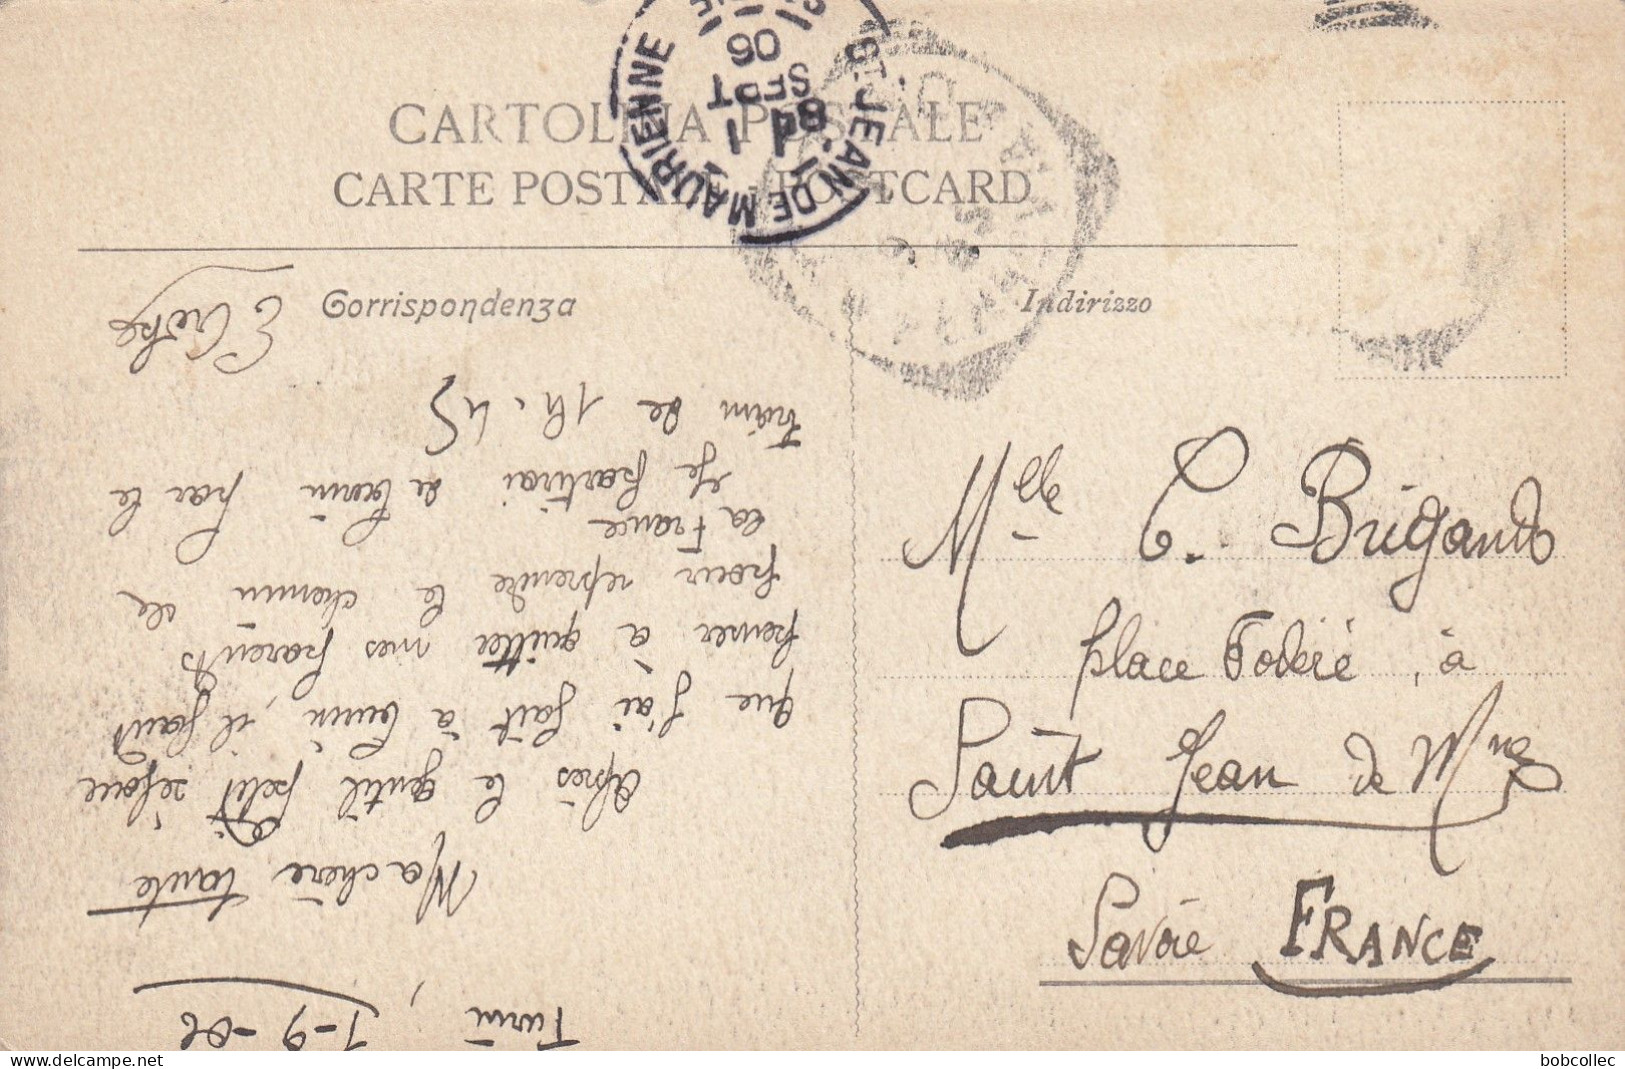 CARTOLINA POSTALE
CARTE POSTALE - POSTCARD
ST JEAN DE MAURIENNE
SEPT
06
Corrispondenza
Indirizzo
Turin, 1-9-06
Ma chère tante
Après le gentil petit séjour
que j'ai fait à Turin, il faut
penser à quitter mes parents
pour reprendre le chemin de
la France
Je partirai de Turin par le
train de 1h.45
Mlle C. Brigand
place Fodéré, à
Saint Jean de Mne
Savoie FRANCE
bobcollec